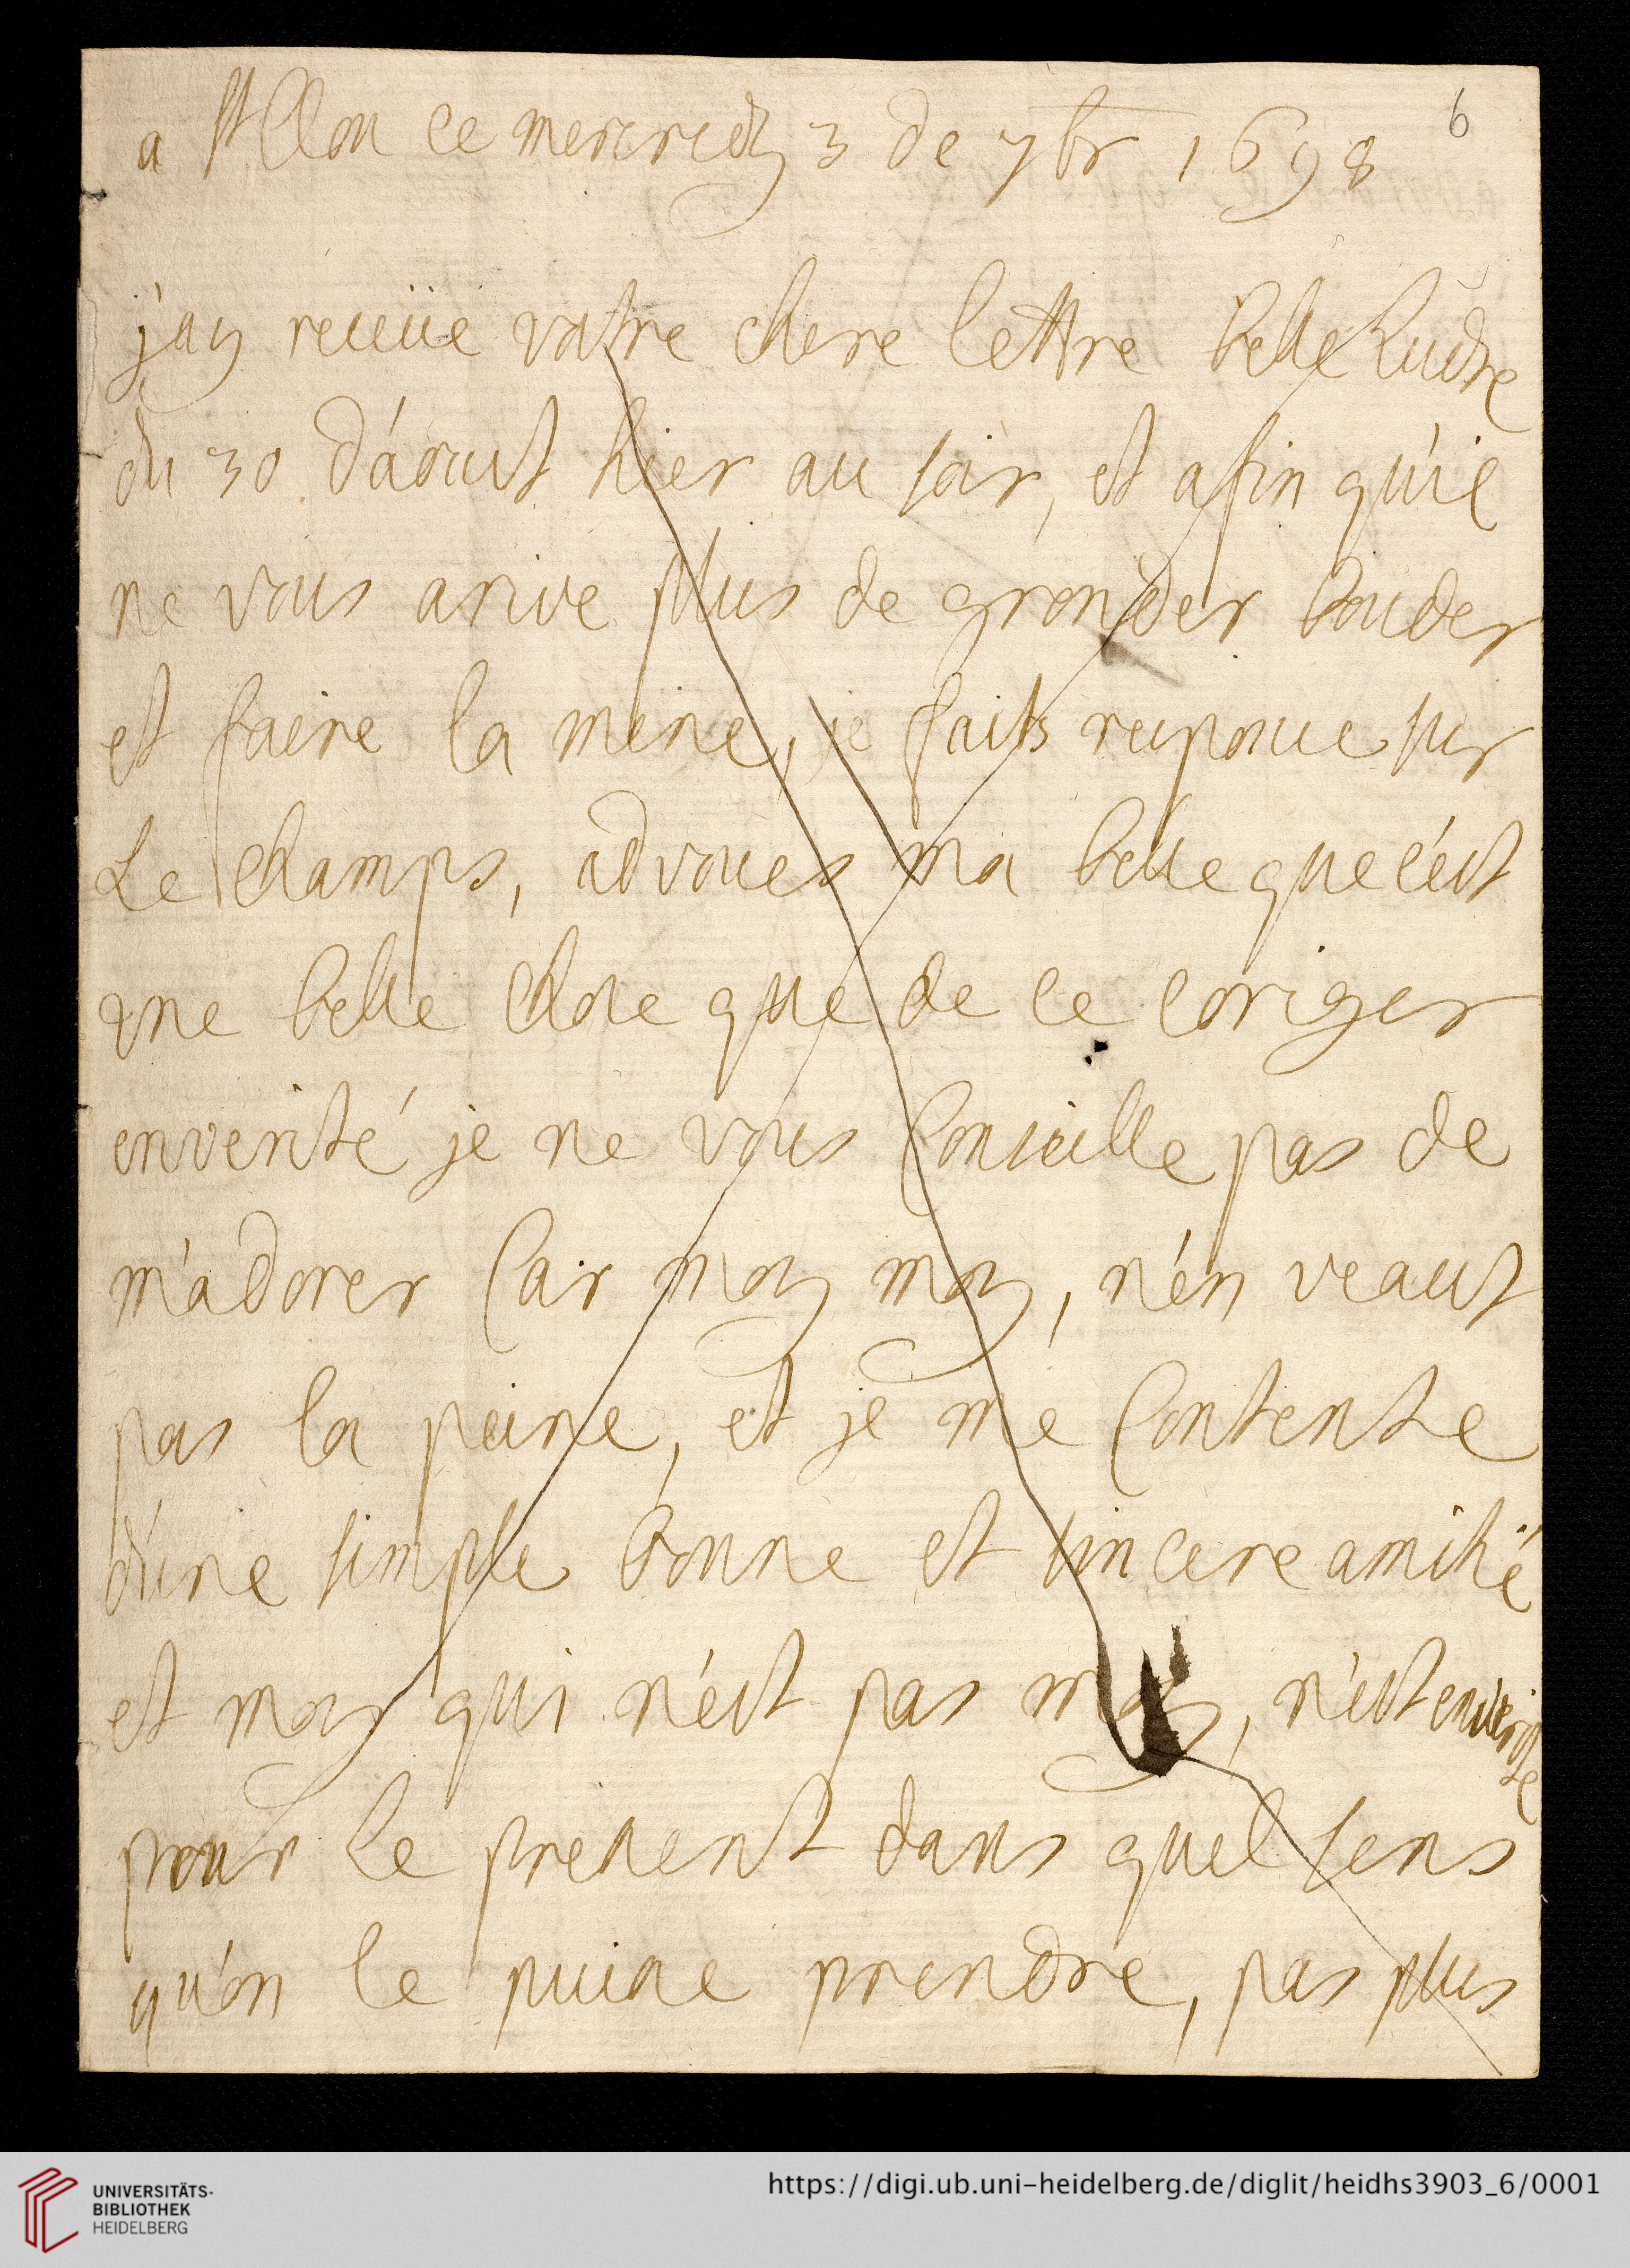 a St Clou ce mercredy 3 de 7br 1698
6
j'ay receüe vostre chere lettre belle Ludre
du 30 d'aoust hier au soir, et afin qu'il
ne vous arive plus de gronder bouder
et faire la mine, je faits responce sur
Le champs, advoues ma belle que c'est
une belle chose que de ce coriger
enverité je ne vous conseille pas de
m'adorer car moy moy, n'en veaut
pas la peine, et je me contente
d'une simple bonne et sincere amitié
et moy qui n'est pas moy, n'est enverité
pour Le present dans quel sens
qu'on le puise prendre, pas plus
UNIVERSITÄTS-
BIBLIOTHEK
HEIDELBERG
https://digi.ub.uni-heidelberg.de/diglit/heidhs3903_6/0001